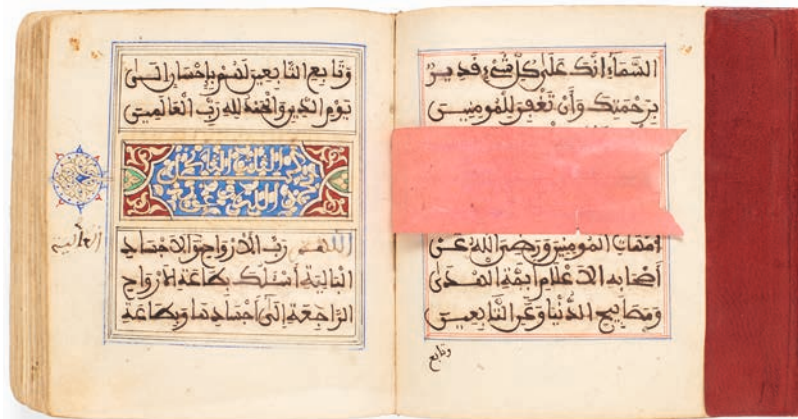 السماء انك على كل شيء قدير
برحمتك وأن تغفر للمومنين
امهات المومنين ورضي الله عن
أصحابه الاعلام ايمة الهدى
ومصابيح الدنيا وعن التابعين
وتابع
وتابع التابعين لهم بإحسان الى
يوم الدين والحمد لله رب العالمين
اللهم رب الارواح والاجساد
البالية أسئلك بطاعة الارواح
الراجعة إلى أجسادها وبطاعة